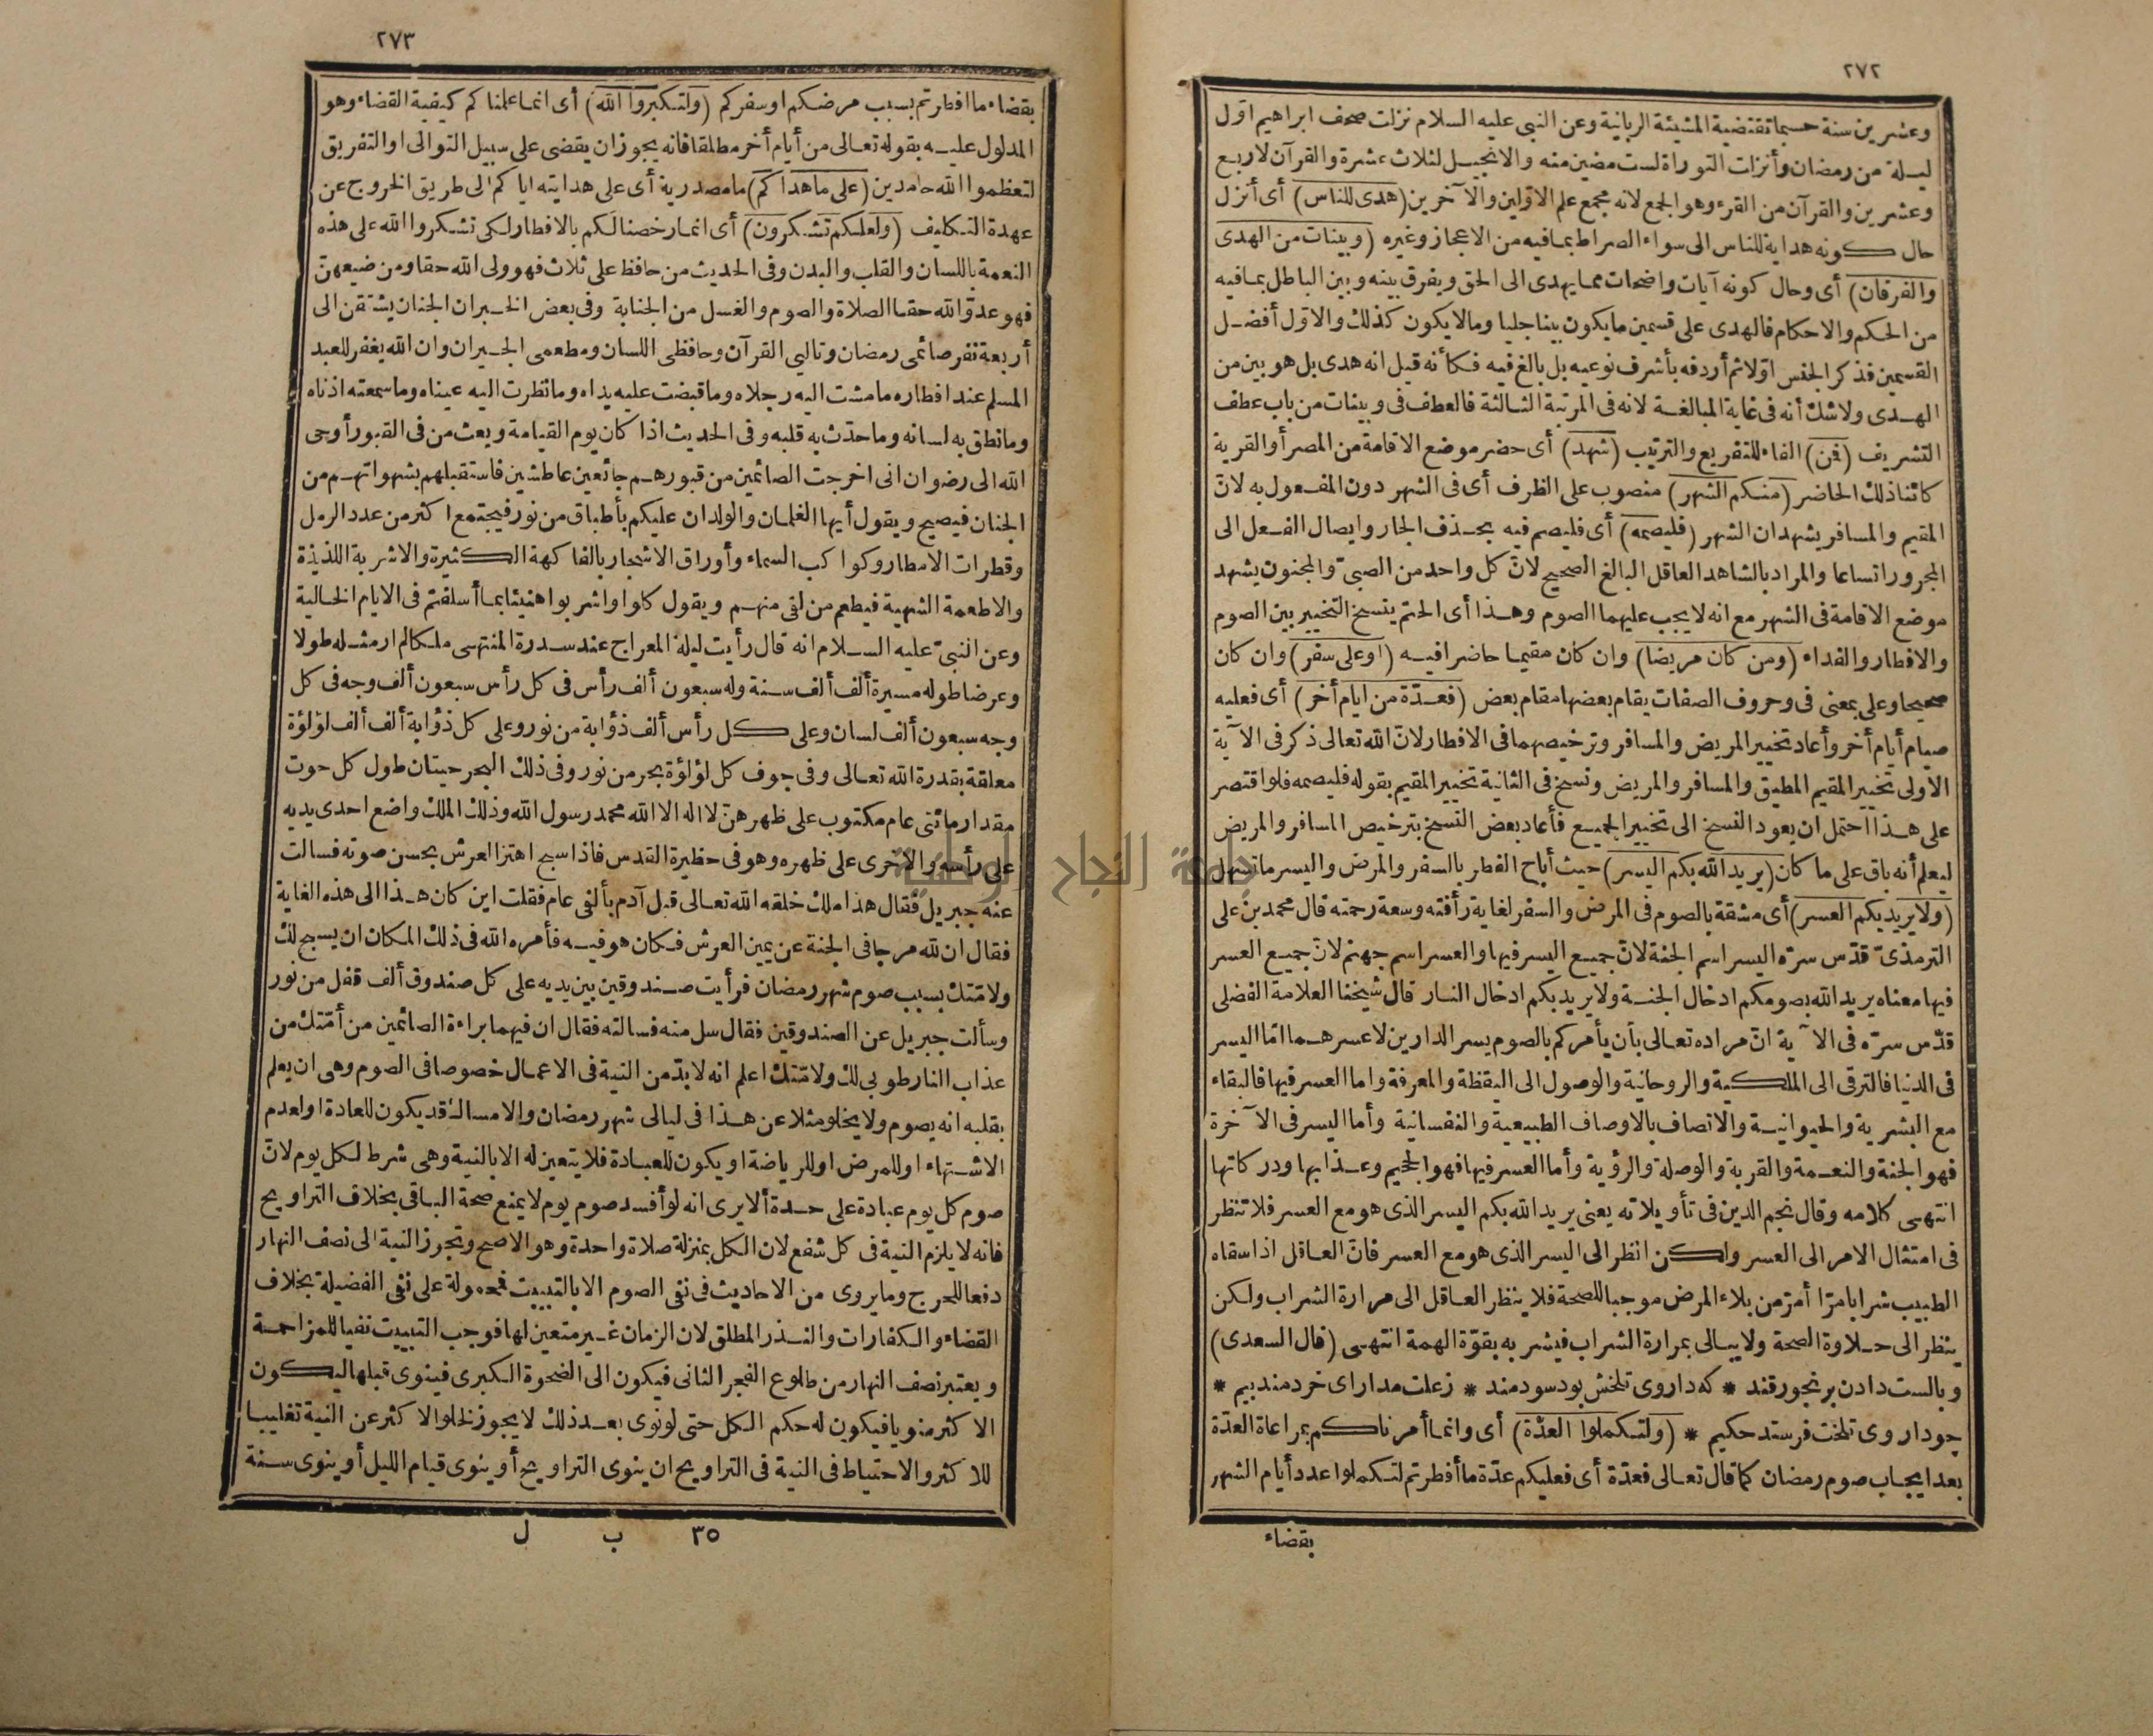 ٢٧٢
وعشرين سنة حسبما تقتضية المشيئة الربانية وعن النبى عليه السلام نزلت صحف ابراهيم اوّل
ليلة من رمضان وأنزلت التوراة لست مضين منه والانجيل لثلاث عشرة والقرآن لاربع
وعشرين والقرآن من القرء وهو الجمع لانه مجمع علم الاوّلين والآخرين (هدى للناس) أى أنزل
حال كونه هداية للناس الى سواء الصراط بمافيه من الاعجاز وغيره (وبينات من الهدى
والفرقان) أى وحال كونه آيات واضحات مما يهدى الى الحق ويفرق بينه وبين الباطل بمافيه
من الحكم والاحكام فالهدى على قسمين ما يكون بينا جليا وما لا يكون كذلك والاوّل أفضل
القسمين فذكر الجنس اوّلا ثم أردفه بأشرف نوعيه بل بالغ فيه فكأنه قيل انه هدى بل هو بين من
الهدى ولا شك أنه فى غاية المبالغة لانه فى المرتبة الثالثة فالعطف فى وبينات من باب عطف
التشريف (فمن) الفاء للتفريع والترتيب (شهد) أى حضر موضع الاقامة من المصر أو القرية
كائنا ذلك الحاضر (منكم الشهر) منصوب على الظرف أى فى الشهر دون المفعول به لانّ
المقيم والمسافر يشهدان الشهر (فليصمه) أى فليصم فيه بحذف الجار وايصال الفعل الى
المجرور اتساعا والمراد بالشاهد العاقل البالغ الصحيح لانّ كل واحد من الصبىّ والمجنون يشهد
موضع الاقامة فى الشهر مع انه لا يجب عليهما الصوم وهذا أى الحتم ينسخ التخيير بين الصوم
والافطار والفداء (ومن كان مريضا) وان كان مقيما حاضرا فيه (اوعلى سفر) وان كان
صحيحا وعلى بمعنى فى وحروف الصفات يقام بعضها مقام بعض (فعدّة من ايام أخر) أى فعليه
صيام أيام أخر وأعاد تخيير المريض والمسافر وترخيصهما فى الافطار لانّ الله تعالى ذكر فى الآية
الاولى تخيير المقيم المطيق والمسافر والمريض ونسخ فى الثانية تخيير المقيم بقوله فليصمه فلو اقتصر
على هذا احتمل ان يعود النسخ الى تخيير الجميع فأعاد بعض النسخ بترخيص المسافر والمريض
ليعلم أنه باق على ما كان (يريد الله بكم اليسر) حيث أباح الفطر بالسفر والمرض واليسر ما تسهل
(ولا يريد بكم العسر) أى مشقة بالصوم فى المرض والسفر لغاية رأفته وسعة رحمته قال محمد بن على
الترمذىّ قدّس سرّه اليسر اسم الجنة لانّ جميع اليسر فيها والعسر اسم جهنم لانّ جميع العسر
فيها معناه يريد الله بصومكم ادخال الجنة ولا يريد بكم ادخال النار قال شيخنا العلامة الفضلى
قدّس سرّه فى الآية انّ مراده تعالى بأن يأمركم بالصوم يسر الدارين لا عسرهما امّا اليسر
فى الدنيا فالترقى الى الملكية والروحانية والوصول الى اليقظة والمعرفة واما العسر فيها فالبقاء
مع البشرية والحيوانية والاتصاف بالاوصاف الطبيعية والنفسانية وأما اليسر فى الآخرة
فهو الجنة والنعمة والقربة والوصلة والرؤية وأما العسر فيها فهو الجحيم وعذابها ودركاتها
انتهى كلامه وقال نجم الدين فى تأويلاته يعنى يريد الله بكم اليسر الذى هو مع العسر فلا تنظر
فى امتثال الامر الى العسر ولكن انظر الى اليسر الذى هو مع العسر فانّ العاقل اذا سقاه
الطبيب شرابا مرّا أمرّ من بلاء المرض موجبا للصحة فلا ينظر العاقل الى مرارة الشراب ولكن
ينظر الى حلاوة الصحة ولا يبالى بمرارة الشراب فيشربه بقوّة الهمة انتهى (قال السعدى)
وبالست دادن برنجور قند * كه داروى تلخش بود سودمند * زعلت مدار اى خردمند بيم *
چو داروى تلخت فرستد حكيم * (ولتكملوا العدّة) أى وانما أمرناكم بمراعاة العدّة
بعد ايجاب صوم رمضان كما قال تعالى فعدّة أى فعليكم عدّة ما أفطرتم لتكملوا عدد أيام الشهر
بقضاء
٢٧٣
بقضاء ما افطرتم بسبب مرضكم او سفركم (ولتكبروا الله) أى انما علمناكم كيفية القضاء وهو
المدلول عليه بقوله تعالى من أيام أخر مطلقا فانه يجوز ان يقضى على سبيل التوالى او التفريق
لتعظموا الله حامدين (على ما هداكم) ما مصدرية أى على هدايته اياكم الى طريق الخروج عن
عهدة التكليف (ولعلكم تشكرون) أى انما رخصنا لكم بالافطار لكى تشكروا الله على هذه
النعمة باللسان والقلب والبدن وفى الحديث من حافظ على ثلاث فهو ولى الله حقا ومن ضيعهنّ
فهو عدوّ الله حقا الصلاة والصوم والغسل من الجنابة وفى بعض الخبر ان الجنان يشتقن الى
أربعة نفر صائمى رمضان وتالى القرآن وحافظى اللسان ومطعمى الجيران وان الله يغفر للعبد
المسلم عند افطاره ما مشت اليه رجلاه وما قبضت عليه يداه وما نظرت اليه عيناه وما سمعته اذناه
وما نطق به لسانه وما حدّث به قلبه وفى الحديث اذا كان يوم القيامة وبعث من فى القبور أوحى
الله الى رضوان انى اخرجت الصائمين من قبورهم جائعين عاطشين فاستقبلهم بشهواتهم من
الجنان فيصيح ويقول أيها الغلمان والولدان عليكم بأطباق من نور فيجتمع اكثر من عدد الرمل
وقطرات الامطار وكواكب السماء وأوراق الاشجار بالفاكهة الكثيرة والاشربة اللذيذة
والاطعمة الشهية فيطعم من لقى منهم ويقول كلوا واشربوا هنيئا بما أسلفتم فى الايام الخالية
وعن النبىّ عليه السلام انه قال رأيت ليلة المعراج عند سدرة المنتهى ملكا لم ار مثله طولا
وعرضا طوله مسيرة ألف ألف سنة وله سبعون ألف رأس فى كل رأس سبعون ألف وجه فى كل
وجه سبعون ألف لسان وعلى كل رأس ألف ذؤابة من نور وعلى كل ذؤابة ألف ألف لؤلؤة
معلقة بقدرة الله تعالى وفى جوف كل لؤلؤة بحر من نور وفى ذلك البحر حيتان طول كل حوت
مقدار مائتى عام مكتوب على ظهرهنّ لا اله الا الله محمد رسول الله وذلك الملك واضع احدى يديه
على رأسه والاخرى على ظهره وهو فى حظيرة القدس فاذا سبح اهتز العرش بحسن صوته فسالت
عنه جبريل فقال هذا ملك خلقه الله تعالى قبل آدم بألفى عام فقلت اين كان هذا الى هذه الغاية
فقال ان لله مرجا فى الجنة عن يمين العرش فكان هو فيه فأمره الله فى ذلك المكان ان يسبح لك
ولامّتك بسبب صوم شهر رمضان فرأيت صندوقين بين يديه على كل صندوق ألف قفل من نور
وسألت جبريل عن الصندوقين فقال سل منه فسالته فقال ان فيهما براءة الصائمين من أمّتك من
عذاب النار طوبى لك ولامّتك اعلم انه لا بدّ من النية فى الاعمال خصوصا فى الصوم وهى ان يعلم
بقلبه انه يصوم ولا يخلو مثلا عن هذا فى ليالى شهر رمضان والامساك قد يكون للعادة او لعدم
الاشتهاء او للمرض او للرياضة او يكون للعبادة فلا يتعين له الا بالنية وهى شرط لكل يوم لانّ
صوم كل يوم عبادة على حدة ألا يرى انه لو أفسد صوم يوم لا يمنع صحة الباقى بخلاف التراويح
فانه لا يلزم النية فى كل شفع لان الكل بمنزلة صلاة واحدة وهو الاصح وتجوز النية الى نصف النهار
دفعا للحرج وما يروى من الاحاديث فى نفى الصوم الا بالتبييت فمحمولة على نفى الفضيلة بخلاف
القضاء والكفارات والنذر المطلق لان الزمان غير متعين لها فوجب التبييت نفيا للمزاحمة
ويعتبر نصف النهار من طلوع الفجر الثانى فيكون الى الضحوة الكبرى فينوى قبلها ليكون
الاكثر منويا فيكون له حكم الكل حتى لو نوى بعد ذلك لا يجوز لخلو الاكثر عن النية تغليبا
للاكثر والاحتياط فى النية فى التراويح ان ينوى التراويح أو ينوى قيام الليل أو ينوى سنة
٣٥ ب ل
جامعة النجاح الوطنية